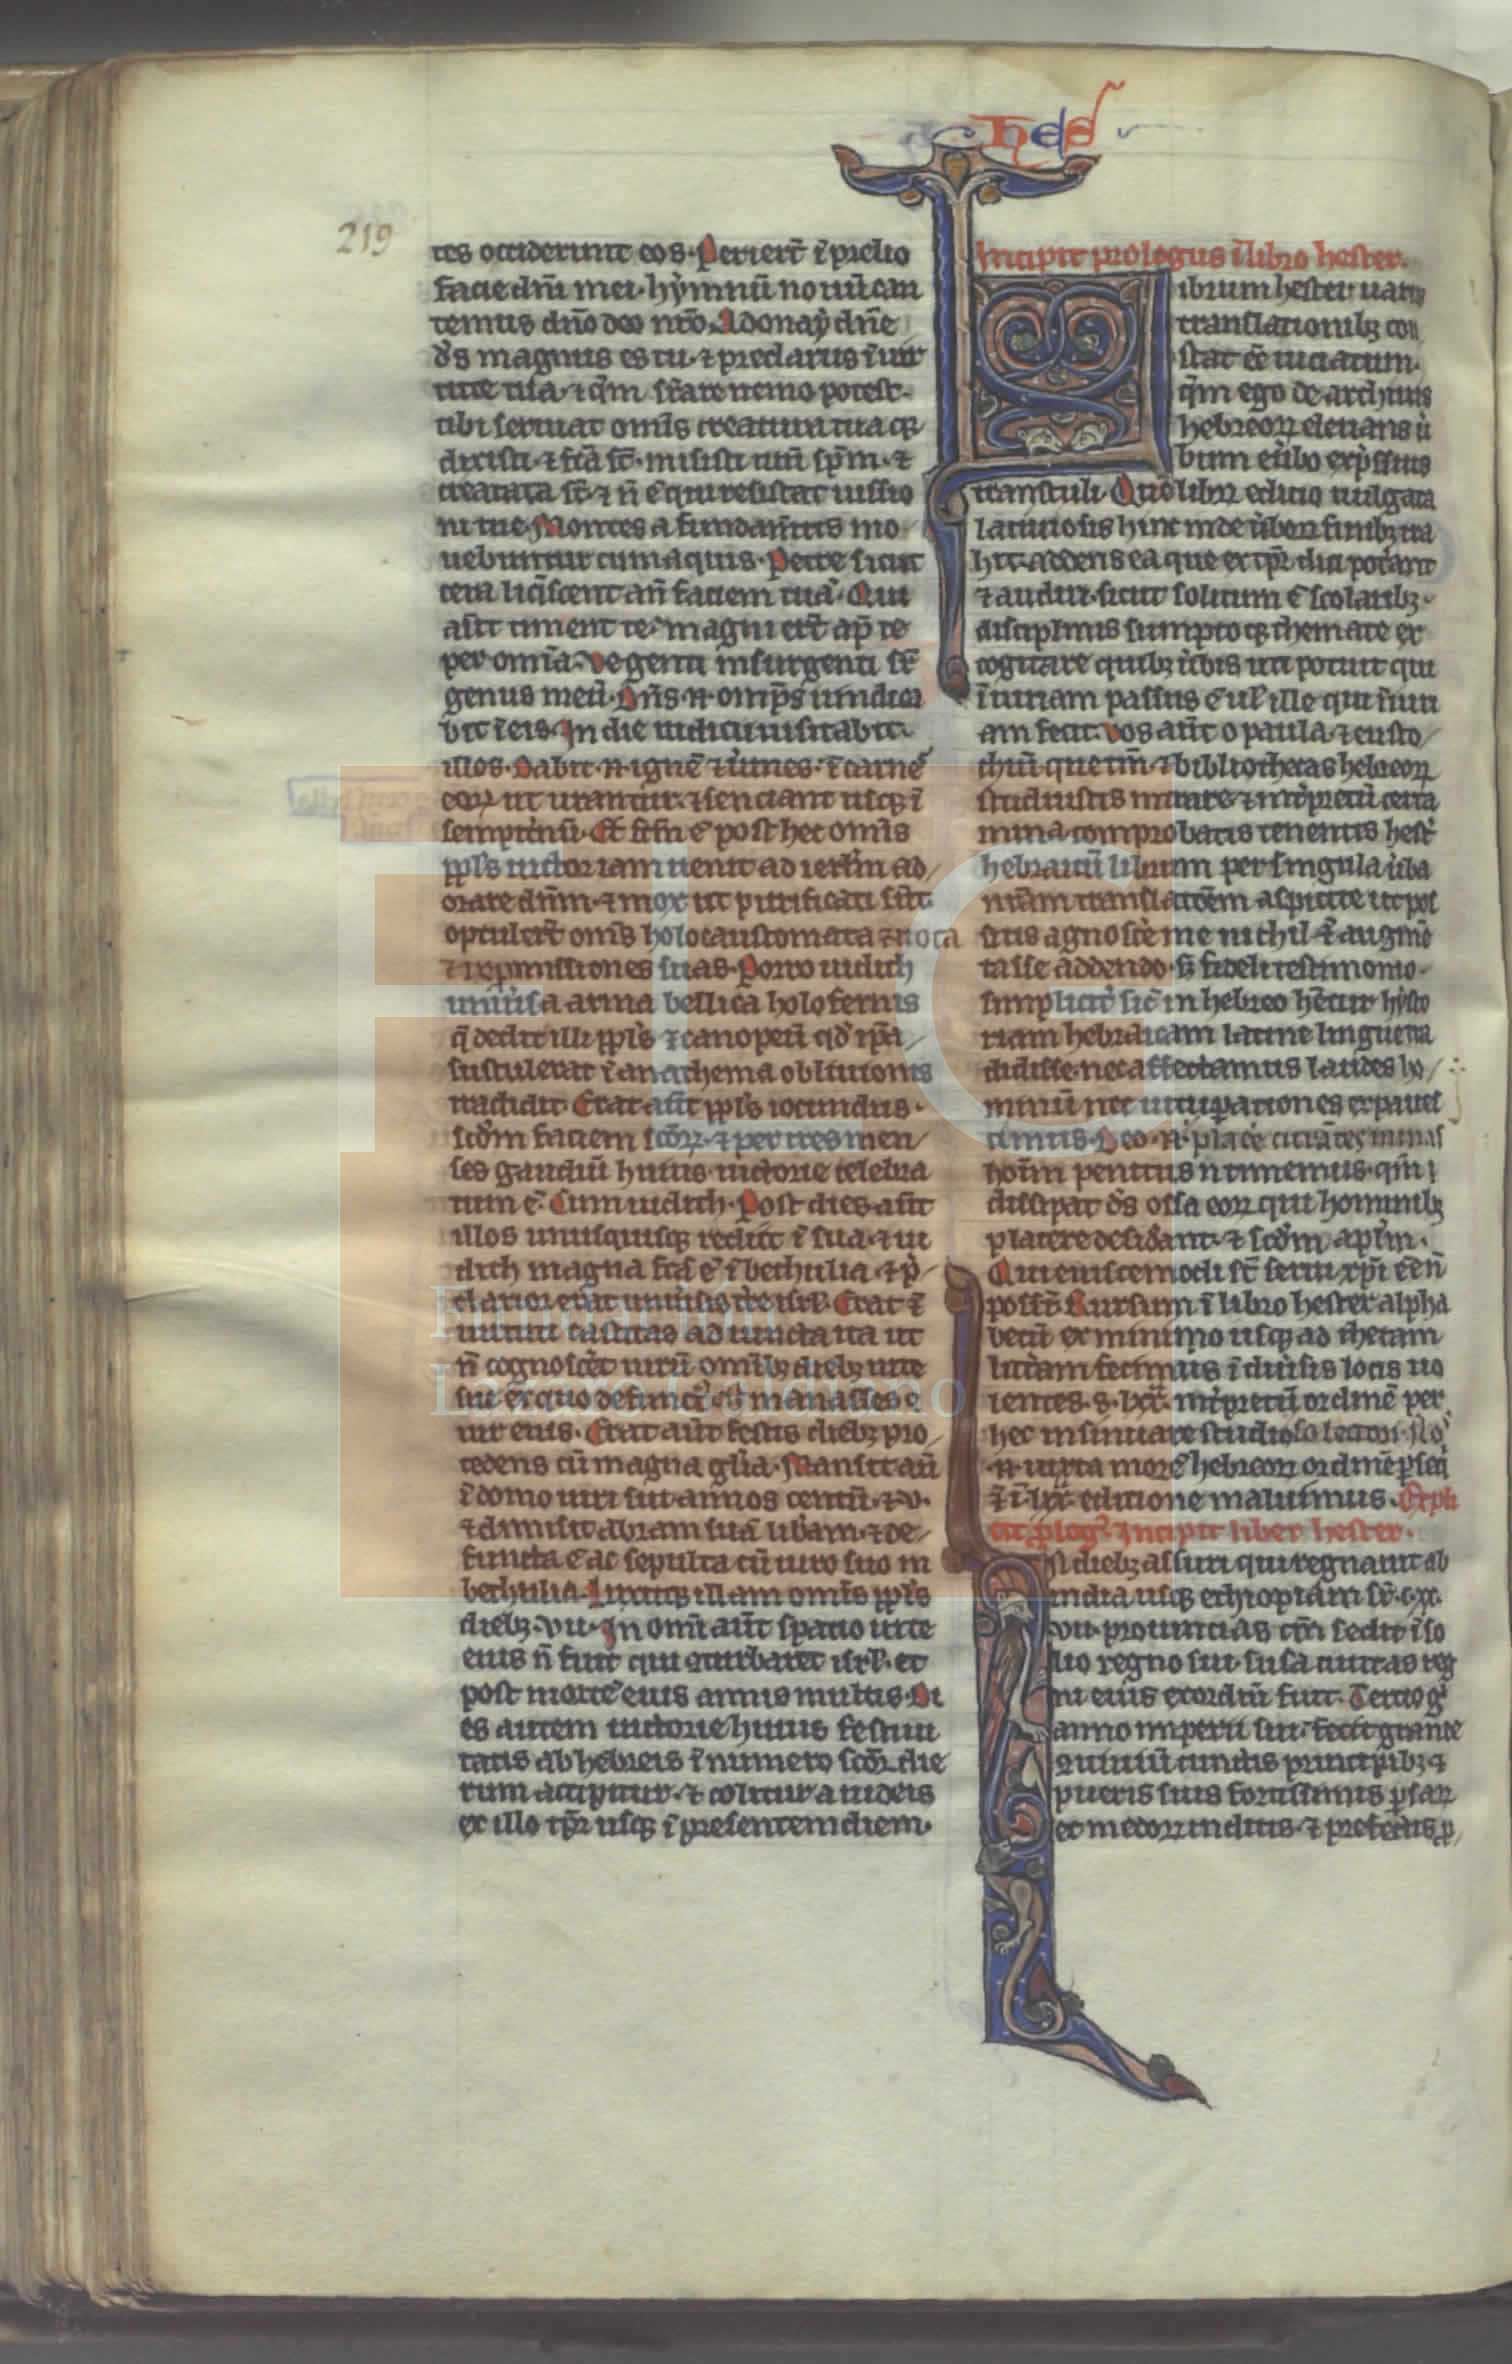 hes
219
tes occiderunt eos. Perier̄t ī prelio
facie dn̄i mei. hẏmnū nouū can
temus dn̄o deo nr̄o. Adonaẏ dn̄e
d̄s magnus es tu. ⁊ preclarus ī uir
tute tua. ⁊ q̄m sūare nemo potest.
tibi seruiat om̄is creatura tua q̄
dixisti. ⁊ fc̄a st̄. misisti tuū sp̄m. ⁊
creatata st̄. ⁊ n̄ ē qui resistat iussio
ni tue. Montes a fundam̄tis mo
uebuntur cum aquis. Petre sicut
cera liq̄scent an̄ faciem tuā. Qui
aūt timent te. magni er̄t ap̄ te
per om̄ia. Ve genti insurgenti sr̄
genus meū. Dn̄s .n. omp̄s uindica
bit ī eis. In die iudicii uisitabit
illos. Dabit .n. ignē ⁊ ūmes. ī carnē
eoꝝ ut urantur. ⁊ senciant usqꝫ ī
sempit̄nū. Et fc̄m ē post hec om̄is
ppl̄s uictoriam uenit ad ierlm̄ ad
orare dn̄m. ⁊ mox ut purificati sūt
optuler̄t om̄s holocaustomata ⁊ uota
⁊ repmissiones suas. Porro iudith
uniūsa arma bellica holofernis
q̄ dedit illi ppl̄s ⁊ canopeū qd̄ ip̄a
sustulerat ī anathema obliuionis
tradidit. Erat aūt ppl̄s iocundus.
scd̄m faciem sc̄oꝝ. ⁊ per tres men
ses gaudiū huius uictorie celebra
tum ē. Cum iudith. Post dies aūt
illos unusquisqꝫ rediit ī sua. ⁊ iu
dith magna fc̄a ē ī bethulia. ⁊ p̄
clarior erat uniūsis t̄re isrl̄. Erat ī
uirtuti castitas adiuncta ita ut
n̄ cognosc̄et uirū om̄ibꝫ diebꝫ uite
sue ex quo defunct᷒ ē manasses
uir eius. Erat aūt festis diebꝫ pro
cedens cū magna gl̄ia. Mansit aū
ī domo uiri sui annos centū. ⁊ v.
⁊ dimisit abram suā lib̄am. ⁊ de
functa ē ac sepulta cū uiro suo in
bethulia. Luxitqꝫ illam om̄is ppl̄s
diebꝫ .vii. In omi aūt spatio uite
eius n̄ fuit qui ꝯturbaret isrl̄. et
post mortē eius annis multis. Di
es autem uictorie huius festiui
tatis ab hebreis ī numero sc̄oꝝ die
rum accipitur. ⁊ colitur a iudeis
ex illo tp̄r usqꝫ ī presentem diem.
Incipit prologus ī libro hester.
Librum hester uariis
translatoribꝫ con
stat eē uiciatum.
q̄m ego de archiuis
hebreoꝝ eleuans ū
bum eūbo exp̄ssius
transtuli. Quē libꝝ editio uulgata
laciniosis hinc inde ūboꝝ funibꝫ tra
hit. addens ea que ex tp̄r dici pot̄ant
⁊ audiri. sicut solitum ē scolaribꝫ
disciplinis sumpto qꝫ themate ex
cogitare quibꝫ ūbis uti potuit qui
ī iuriam passus ē ul̄ ille qui īiuri
am fecit. Vos aūt o paula ⁊ eusto
chiū que q̄m ⁊ bibliothecas hebreoꝝ
studuistis intrare ⁊ int̄pretū certa
mina comprobatis tenentes hest̄
hebraicū librum per singula ūba
nr̄am translatōem aspicite ut pos
sitis agnosc̄e me nichil ēt augm̄
tasse addendo. sꝫ fideli testimonio
simplicit̄ sic̄ in hebreo hētur hẏsto
riam hebraicam latine lingue tra
didisse. nec affectamus laudes ho
minū nec uitup̄ationes expauel
cimus. Deo .n. plac̄e curātes minas
hoīm penitus n timemus. q̄m
dissipat d̄s ossa eoꝝ qui hominibꝫ
placere desid̄ant. ⁊ scd̄m ap̄lm.
Qui eiuscemodi st̄ serui xp̄i eē n̄
posst̄. Rursum ī libro hester alpha
betū ex minimo usqꝫ ad thetam
litt̄am fecimus ī diūsis locis uo
lentes .s. lxx. int̄pretū ordinē per
hec insinuare studioso lectori. Nos
.n. iuxta morē hebreoꝝ ordinē p̄seq̄
⁊ ī .lxx. editione maluimus. Expli
cit plog᷒. Incipit liber hester.
In diebꝫ assueri qui regnauit ab
india usqꝫ ethiopiam sr̄ .cxx.
vii. prouincias q̄n sedit ī so
lio regni sui. susa ciuitas reg
ni eius exordiū fuit. Tercio gͥ
anno imperii sui. fecit grande
ꝯuiuiū cunctis principibꝫ ⁊
pueris suis fortissimis p̄saꝝ
et medoꝝ inclitis. ⁊ prefectis p̄
FLG
Fundación
Lázaro Galdiano